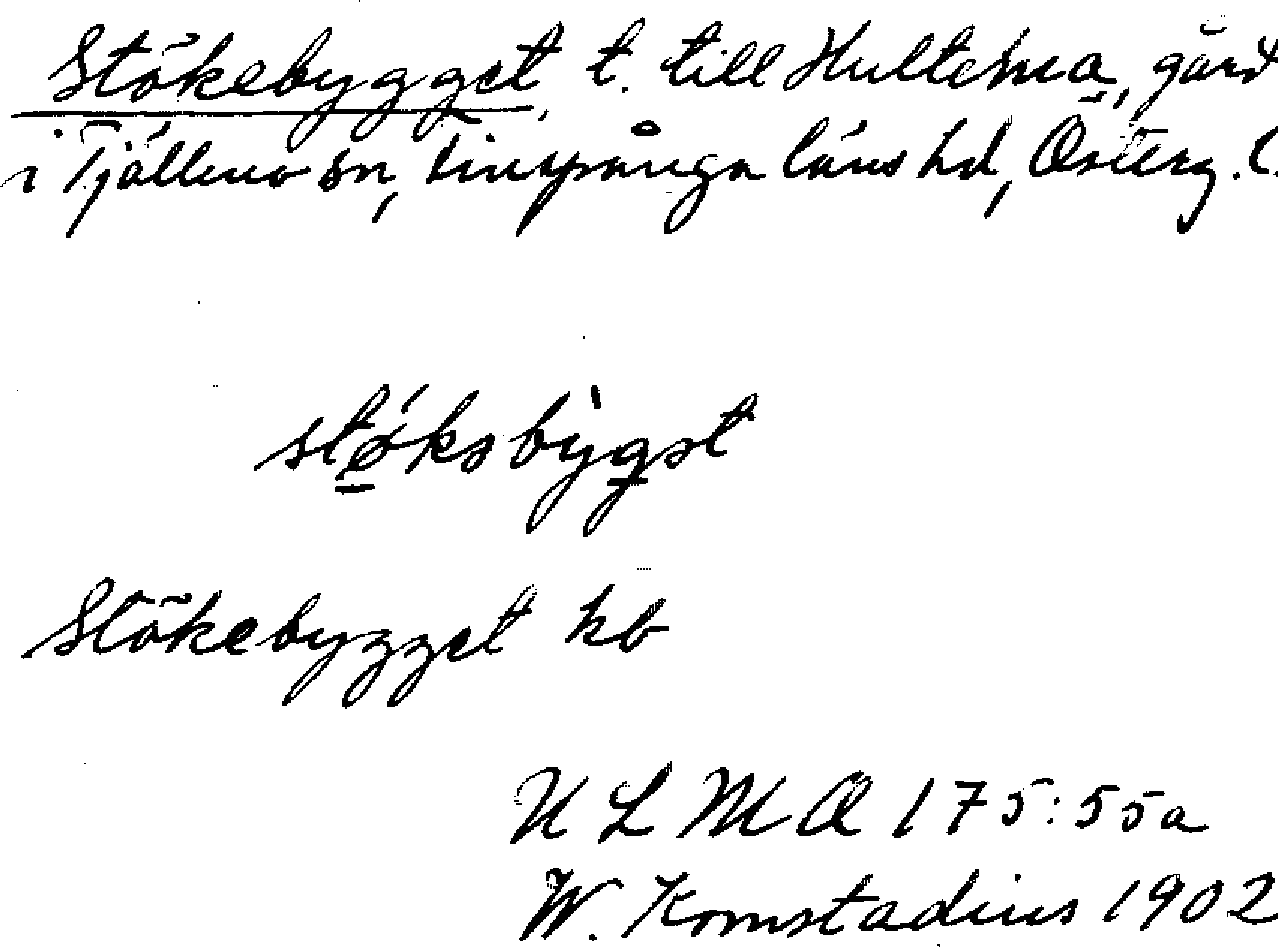 Stökebygget, t. till Hultehua, gård
i Tjällmo sn, Finspånga läns hd, Österg. l.
støkəby̆gət
Stökebygget kb
ULMA 175:55a
W. Komstadius 1902